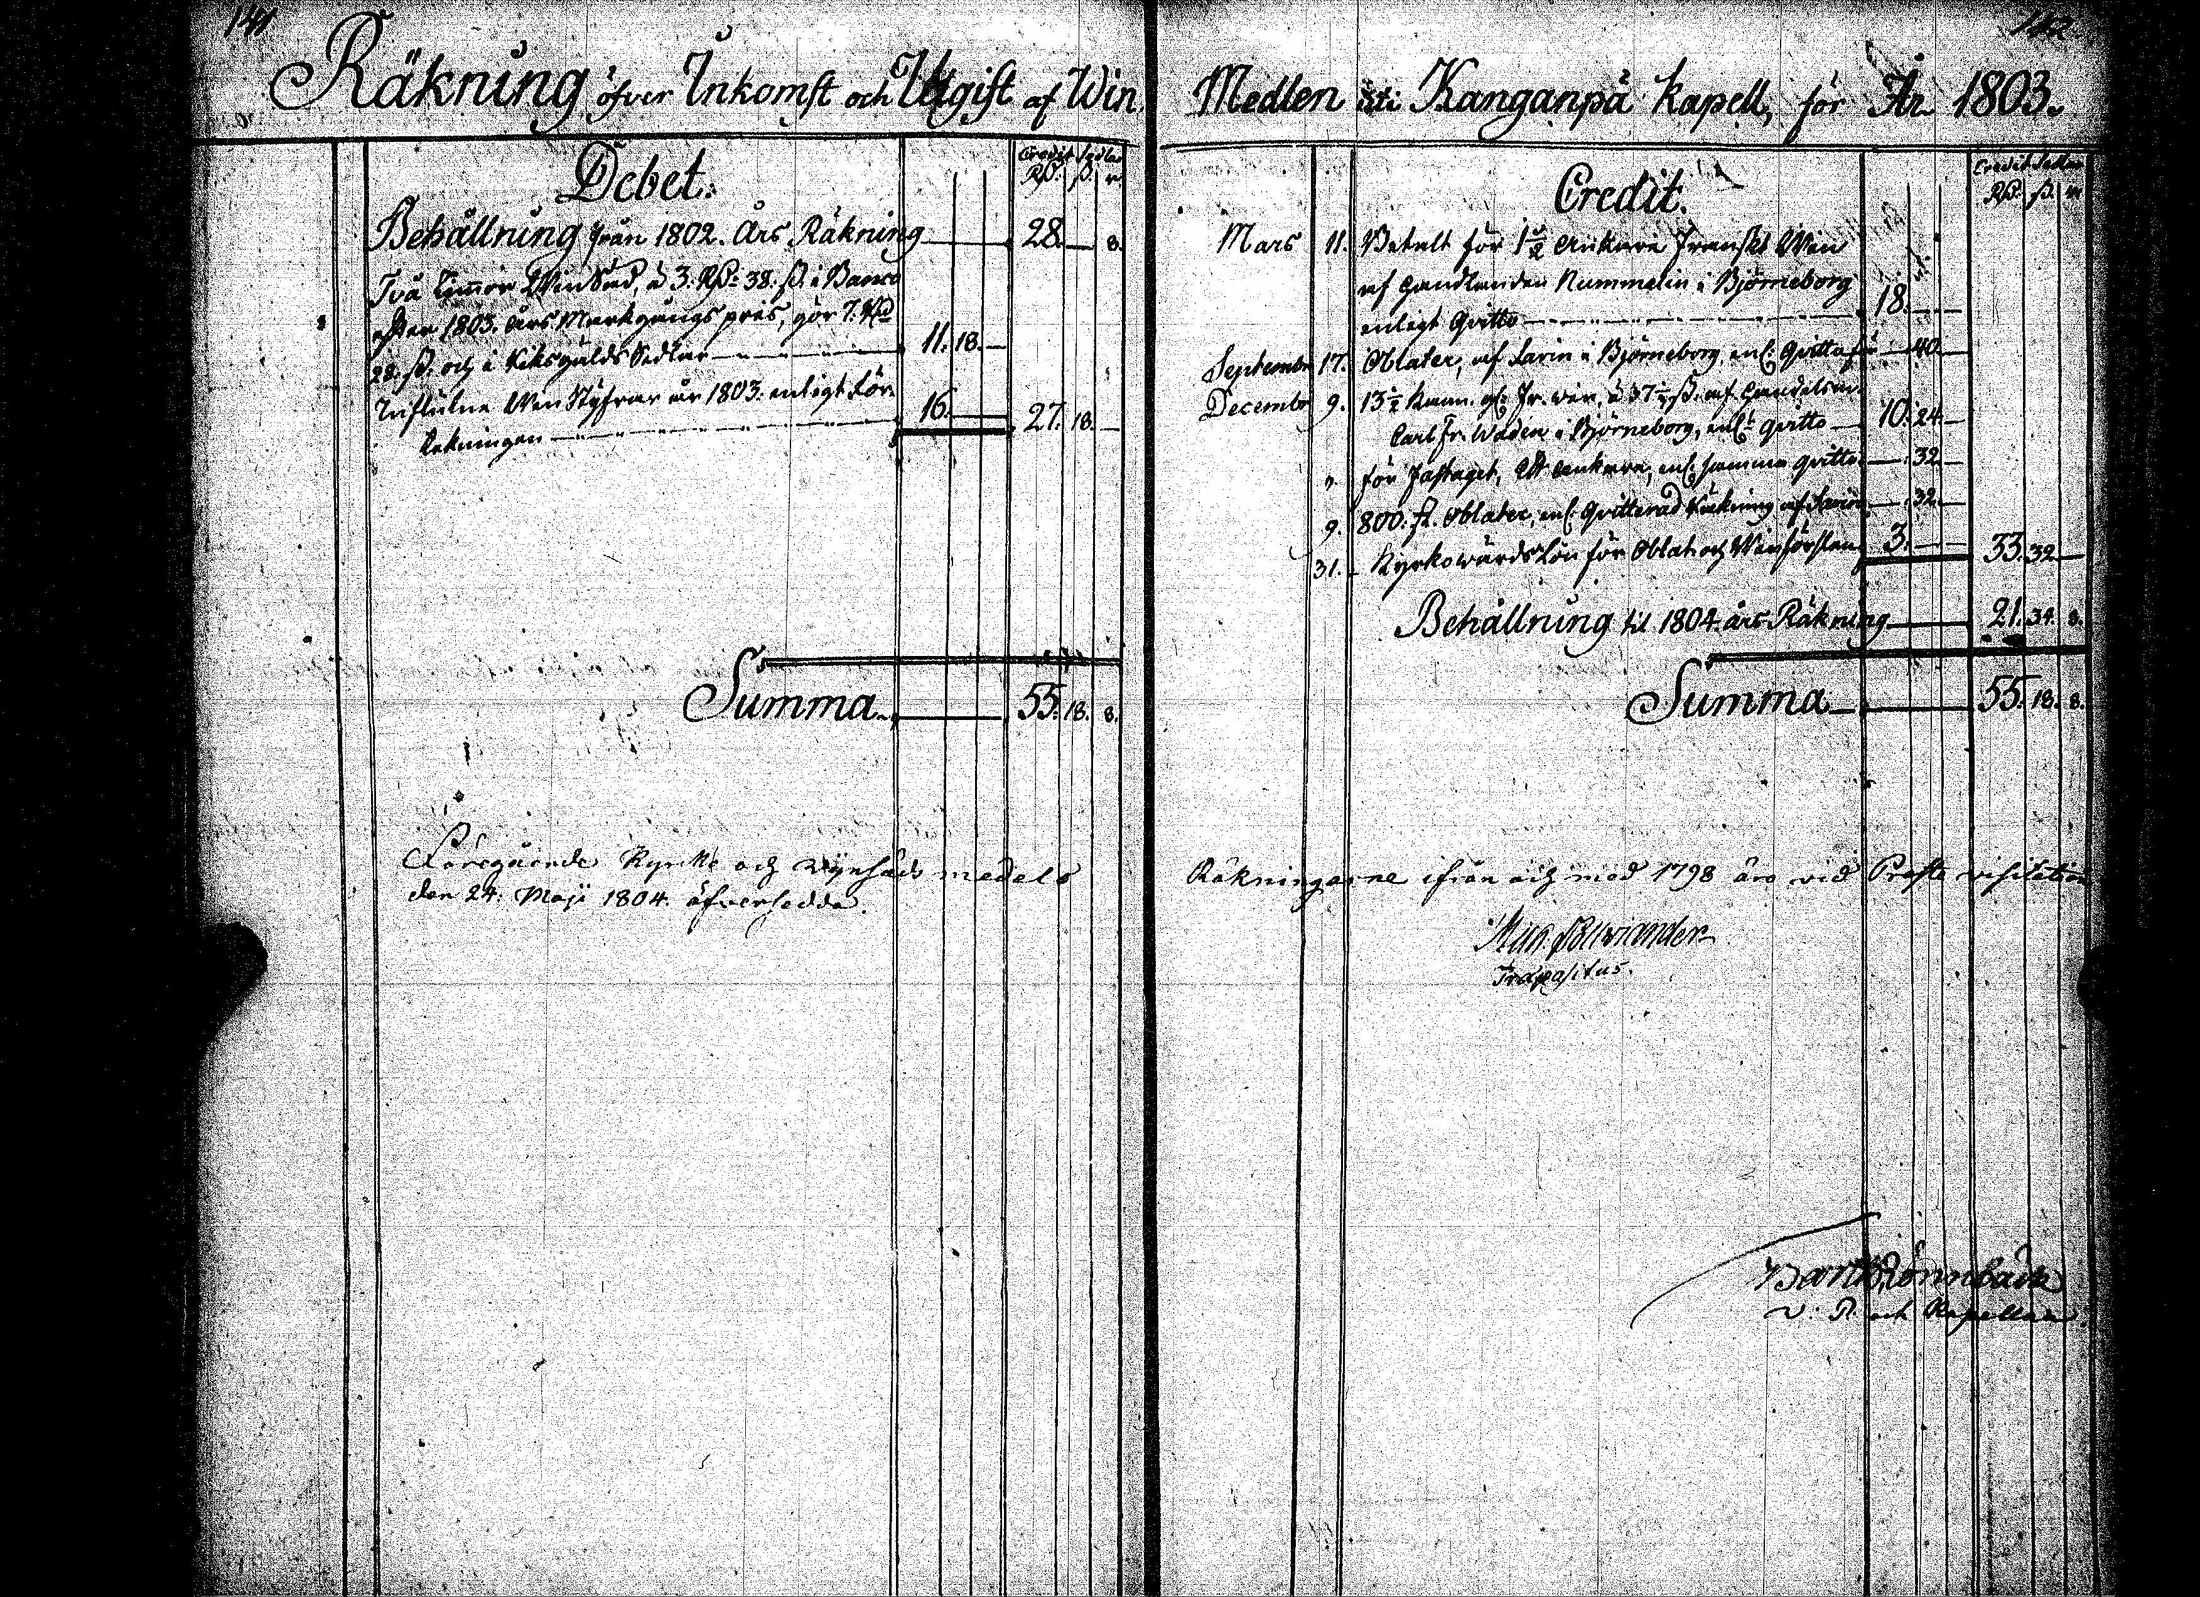 141
Räkning öfver Inkomst och Utgift af Win
Debet.
Credit Sedlar
Rd. ß. r.
Behållning från 1802. Års Räkning 28. — 8.
Två Tunnor Win Säd, à 3. Rd: 38. ß. i Banco
efter 1803. års Markgångs pris, gör 7. Rd
28. ß. och i Riksgälds Sedlar 11. 18. —
Influtne Win Styfrar år 1803. enligt för
Räkningen 16. — 27. 18. —
Summa 55. 18. 8.
Föregående Kyrko och Wynsäds medels
den 24. Maji 1804. öfversedda.
142
Medlen uti Kanganpä Kapell, för År 1803.
Credit.
Credit Sedlar
Rd. ß. r
Mars 11. Betalt för 1 1/2 Ankare Franskt Win
af Handlanden Rummelin i Björneborg
enligt Qvitto 18. — —
September 17. Oblater, af Larin i Björneborg enl. Qvitto — 40. —
Decembr 9. 13 1/2 Kann. gl. Fr. win, à 37 1/2 ß. af Handelsm.
Carl Fr. Wadén i Björneborg, enl:t qvitto 10. 24. —
" för Fastaget, Ett ankare, enl. samma qvitto — 32. —
9. 800. st. Oblater, enl. Qvitterad Räkning af Larin — 32. —
31. Kyrkowärds Lön för Oblat och Win förslan 3. — — 33. 32. —
Behållning til 1804. års Räkning 21. 34. 8.
Summa 55. 18. 8.
Räkningarne ifrån och med 1798 äro vid Prosts visitation
Præpositus.
Barth. Rönnbäck
V. P. och Kapellan.